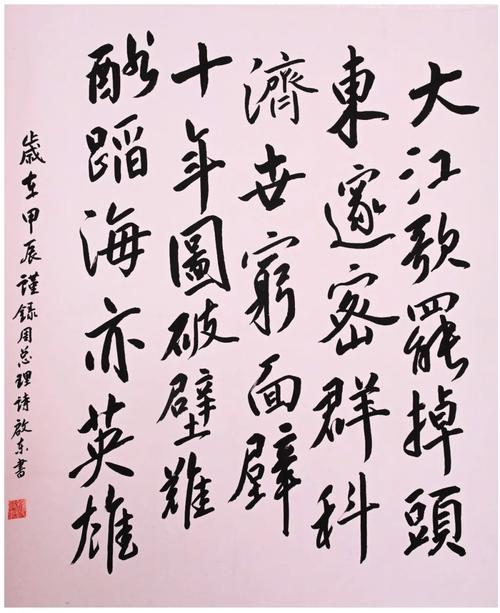 大江歌罷掉頭
東邃密群科
濟世窮面壁
十年圖破壁難
酬蹈海亦英雄
歲在甲辰謹録周总理詩啟东書